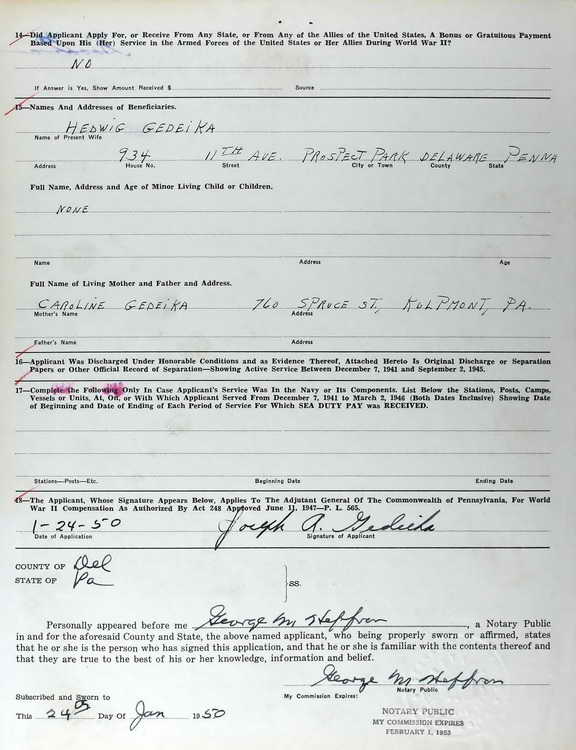 14—Did Applicant Apply For, or Receive From Any State, or From Any of the Allies of the United States, A Bonus or Gratuitous Payment
Based Upon His (Her) Service in the Armed Forces of the United States or Her Allies During World War II?
NO
If Answer is Yes, Show Amount Received $ Source
15—Names And Addresses of Beneficiaries.
HEDWIG GEDEIKA
Name of Present Wife
934 11TH AVE. PROSPECT PARK DELAWARE PENNA
Address House No. Street City or Town County State
Full Name, Address and Age of Minor Living Child or Children.
NONE
Name Address Age
Full Name of Living Mother and Father and Address.
CAROLINE GEDEIKA 760 SPRUCE ST, KULPMONT, PA.
Mother's Name Address
Father's Name Address
16—Applicant Was Discharged Under Honorable Conditions and as Evidence Thereof, Attached Hereto Is Original Discharge or Separation
Papers or Other Official Record of Separation—Showing Active Service Between December 7, 1941 and September 2, 1945.
17—Complete the Following Only In Case Applicant's Service Was In the Navy or Its Components. List Below the Stations, Posts, Camps,
Vessels or Units, At, On, or With Which Applicant Served From December 7, 1941 to March 2, 1946 (Both Dates Inclusive) Showing Date
of Beginning and Date of Ending of Each Period of Service For Which SEA DUTY PAY was RECEIVED.
Stations—Posts—Etc. Beginning Date Ending Date
18—The Applicant, Whose Signature Appears Below, Applies To The Adjutant General Of The Commonwealth of Pennsylvania, For World
War II Compensation As Authorized By Act 248 Approved June 11, 1947—P. L. 565.
1-24-50 Joseph A. Gedeika
Date of Application Signature of Applicant
COUNTY OF Del
STATE OF Pa
ss.
Personally appeared before me George M Heffron, a Notary Public
in and for the aforesaid County and State, the above named applicant, who being properly sworn or affirmed, states
that he or she is the person who has signed this application, and that he or she is familiar with the contents thereof and
that they are true to the best of his or her knowledge, information and belief.
George M Heffron
Notary Public
Subscribed and Sworn to My Commission Expires:
This 24th Day Of Jan 1950
NOTARY PUBLIC
MY COMMISSION EXPIRES
FEBRUARY 1, 1953